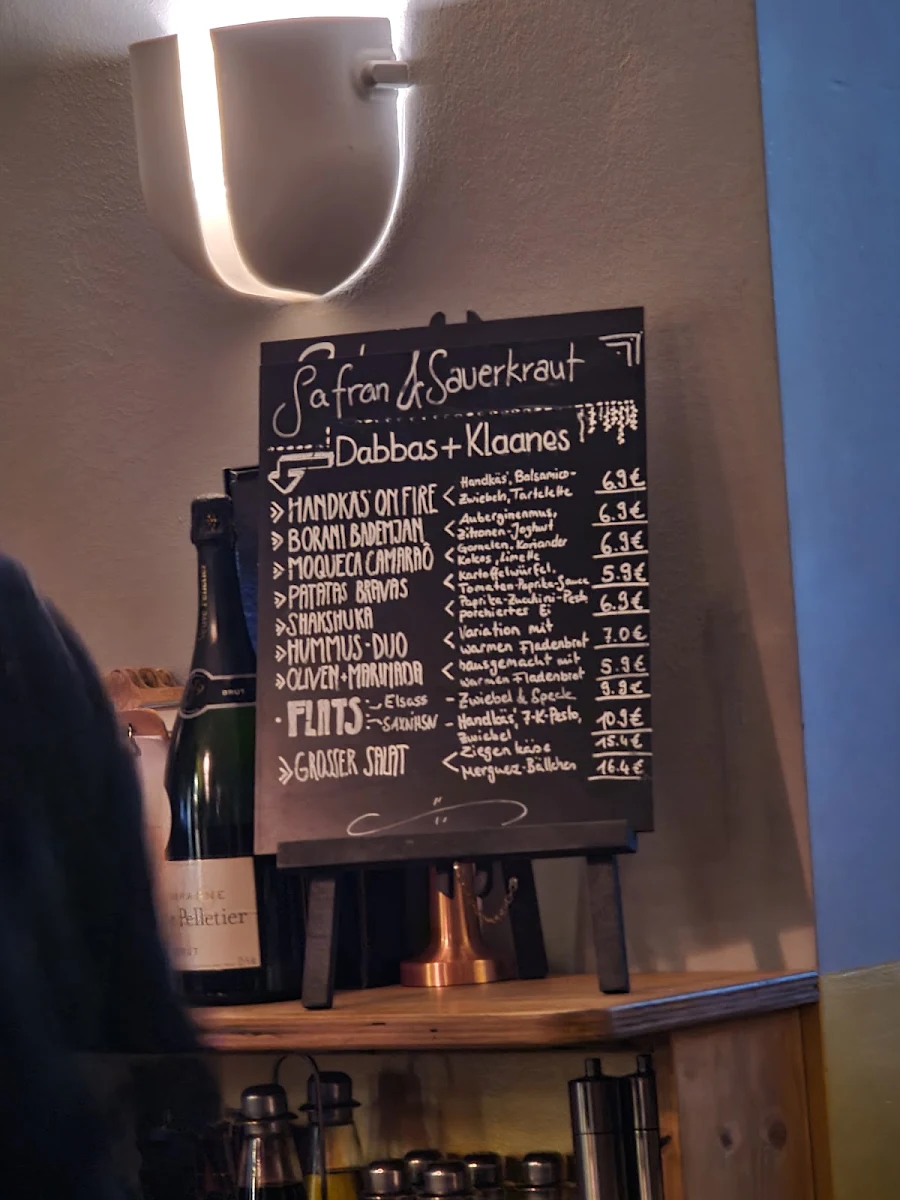 Safran & Sauerkraut
Dabbas + Klaanes
HANDKÄS' ON FIRE < Handkäs', Balsamico-
Zwiebeln, Tartelette 6.9€
BORANI BADEMJAN < Auberginenmus,
Zitronen-Joghurt 6.9€
MOQUECA CAMARAÕ < Garnelen, Koriander
Kokos, Limette 6.9€
PATATAS BRAVAS < Kartoffelwürfel,
Tomaten-Paprika-Sauce 5.9€
SHAKSHUKA < Paprika-Zucchini-Pesto
porchiertes Ei 6.9€
HUMMUS-DUO < Variation mit
warmen Fladenbrot 7.0€
OLIVEN+MARINADA < hausgemacht mit
warmen Fladenbrot 5.9€
FLATS Elsass - Zwiebel & Speck 9.9€
SAXNHSN - Handkäs', 7-K-Pesto,
Zwiebel 10.9€
GROSSER SALAT < Ziegenkäse 15.4€
Merguez-Bällchen 16.4€
BRUT
Pelletier